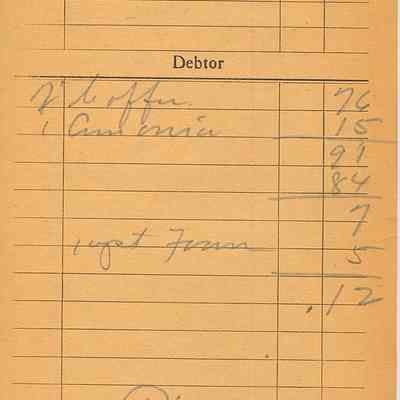 Debtor
2 Coffee 76
1 Amonia 15
91
84
7
1 5
.12